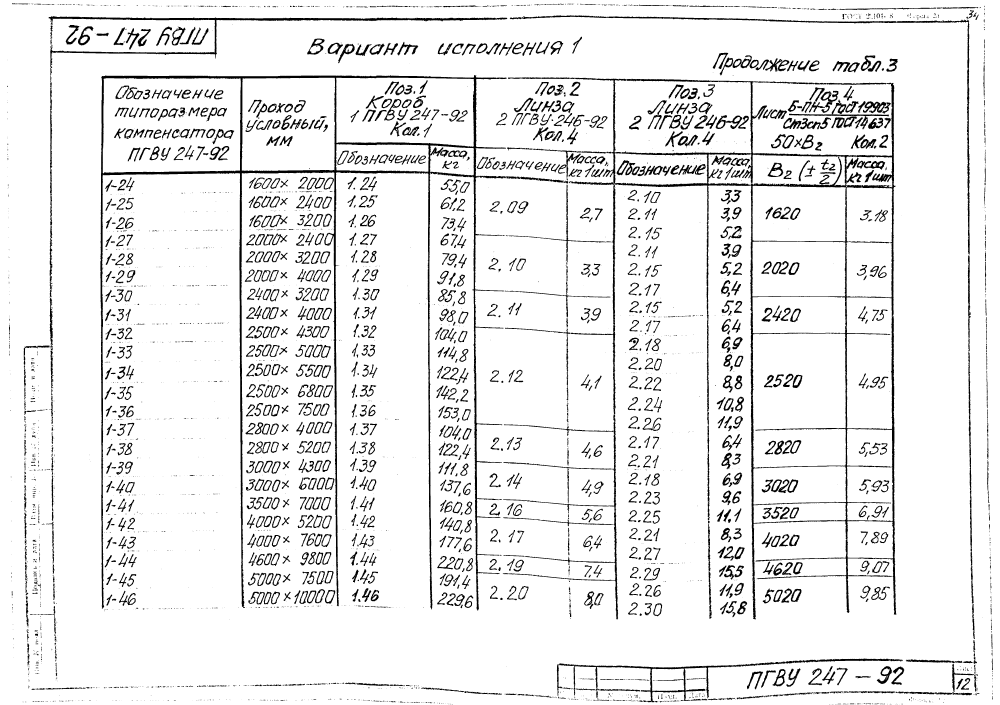 34
ПГВУ 247-92
Вариант исполнения 1
Продолжение табл.3
Обозначение типоразмера компенсатора ПГВУ 247-92 | Проход условный, мм | Поз.1 Короб 1 ПГВУ 247-92 Кол.1 | Поз.2 Линза 2 ПГВУ 246-92 Кол.4 | Поз.3 Линза 2 ПГВУ 246-92 Кол.4 | Поз.4 Лист Б-ПН-5 ГОСТ 19903 Ст3сп5 ГОСТ 14637 50×B2 Кол.2
Обозначение | Масса, кг | Обозначение | Масса, кг 1шт | Обозначение | Масса, кг 1шт | B2 (± t2/2) | Масса, кг 1шт
1-24 | 1600× 2000 | 1.24 | 55,0 | 2.09 | 2,7 | 2.10 | 3,3 | 1620 | 3.18
1-25 | 1600× 2400 | 1.25 | 61,2 | 2.11 | 3,9
1-26 | 1600× 3200 | 1.26 | 73,4 | 2.15 | 5,2
1-27 | 2000× 2400 | 1.27 | 67,4 | 2.10 | 3,3 | 2.11 | 3,9 | 2020 | 3,96
1-28 | 2000× 3200 | 1.28 | 79,4 | 2.15 | 5,2
1-29 | 2000× 4000 | 1.29 | 91,8 | 2.17 | 6,4
1-30 | 2400× 3200 | 1.30 | 85,8 | 2.11 | 3,9 | 2.15 | 5,2 | 2420 | 4,75
1-31 | 2400× 4000 | 1.31 | 98,0 | 2.17 | 6,4
1-32 | 2500× 4300 | 1.32 | 104,0 | 2.12 | 4,1 | 2.18 | 6,9 | 2520 | 4,95
1-33 | 2500× 5000 | 1.33 | 114,8 | 2.20 | 8,0
1-34 | 2500× 5500 | 1.34 | 122,4 | 2.22 | 8,8
1-35 | 2500× 6800 | 1.35 | 142,2 | 2.24 | 10,8
1-36 | 2500× 7500 | 1.36 | 153,0 | 2.26 | 11,9
1-37 | 2800× 4000 | 1.37 | 104,0 | 2.13 | 4,6 | 2.17 | 6,4 | 2820 | 5,53
1-38 | 2800× 5200 | 1.38 | 122,4 | 2.21 | 8,3
1-39 | 3000× 4300 | 1.39 | 111,8 | 2.14 | 4,9 | 2.18 | 6,9 | 3020 | 5,93
1-40 | 3000× 6000 | 1.40 | 137,6 | 2.23 | 9,6
1-41 | 3500× 7000 | 1.41 | 160,8 | 2.16 | 5,6 | 2.25 | 11,1 | 3520 | 6,91
1-42 | 4000× 5200 | 1.42 | 140,8 | 2.17 | 6,4 | 2.21 | 8,3 | 4020 | 7,89
1-43 | 4000× 7600 | 1.43 | 177,6 | 2.27 | 12,0
1-44 | 4600× 9800 | 1.44 | 220,8 | 2.19 | 7.4 | 2.29 | 15,5 | 4620 | 9,07
1-45 | 5000× 7500 | 1.45 | 191,4 | 2.20 | 8,0 | 2.26 | 11,9 | 5020 | 9,85
1-46 | 5000×10000 | 1.46 | 229,6 | 2.30 | 15,8
ПГВУ 247-92
12